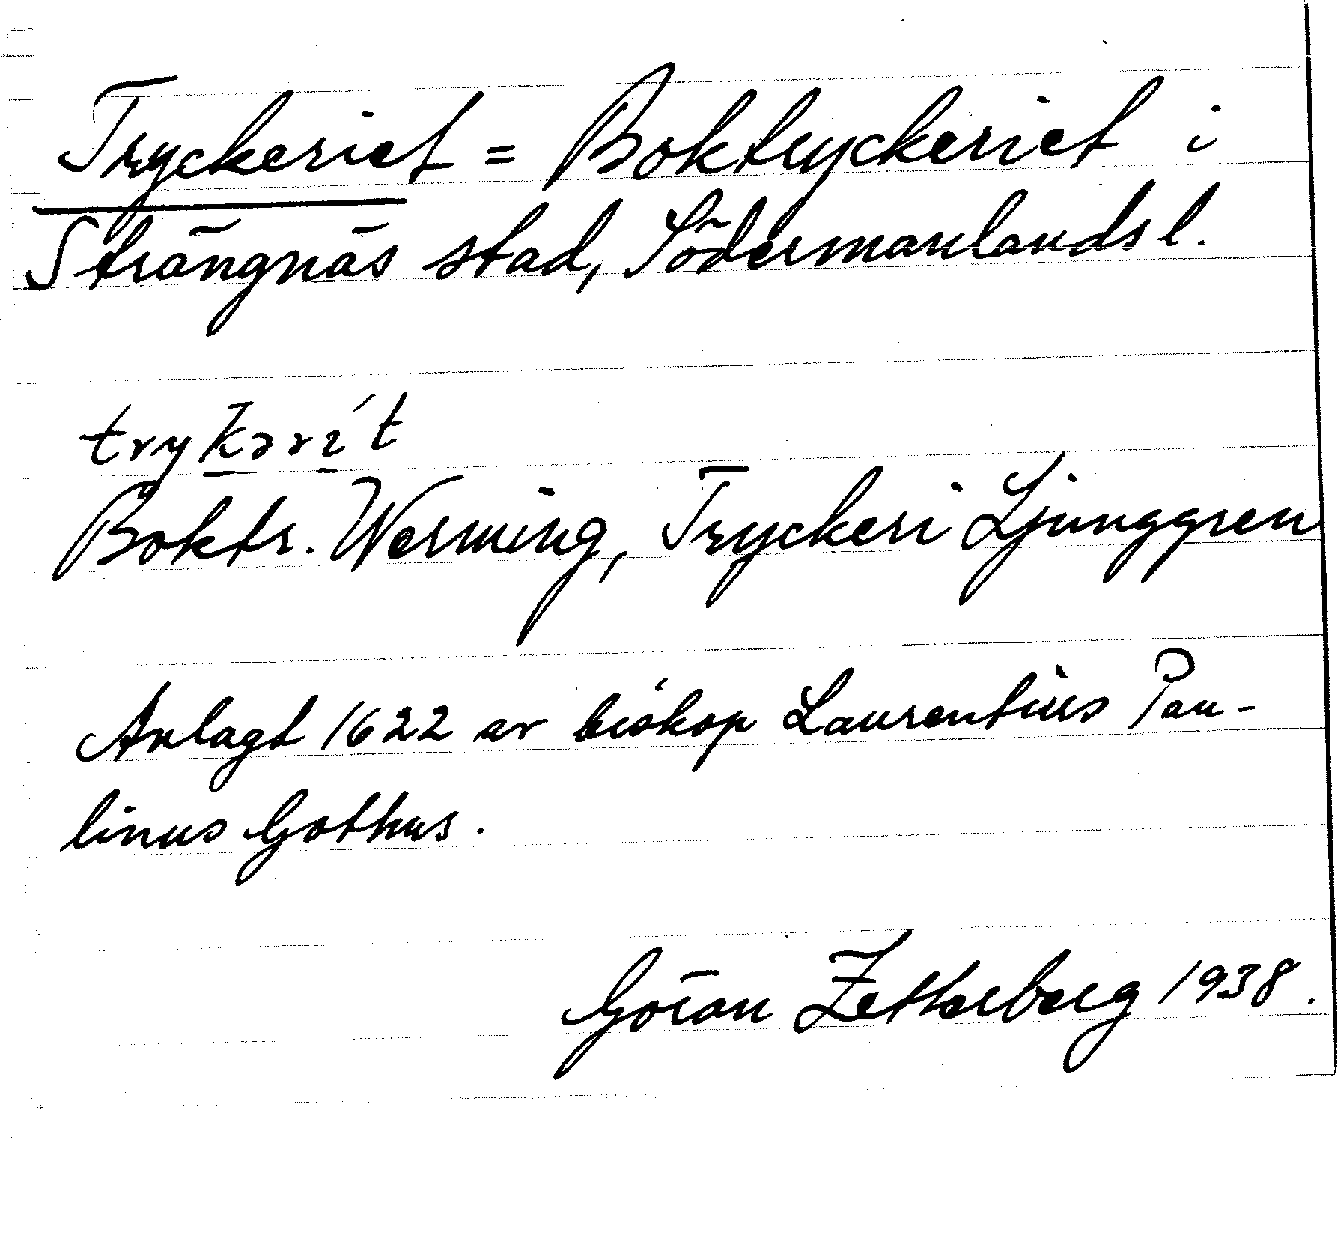 Tryckeriet = Boktryckeriet i
Strängnäs stad, Södermanlands l.
trykərı́t
Boktr. Werming, Tryckeri Ljunggren
Anlagt 1622 av biskop Laurentius Pau-
linus Gothus.
Göran Zetterberg 1938.